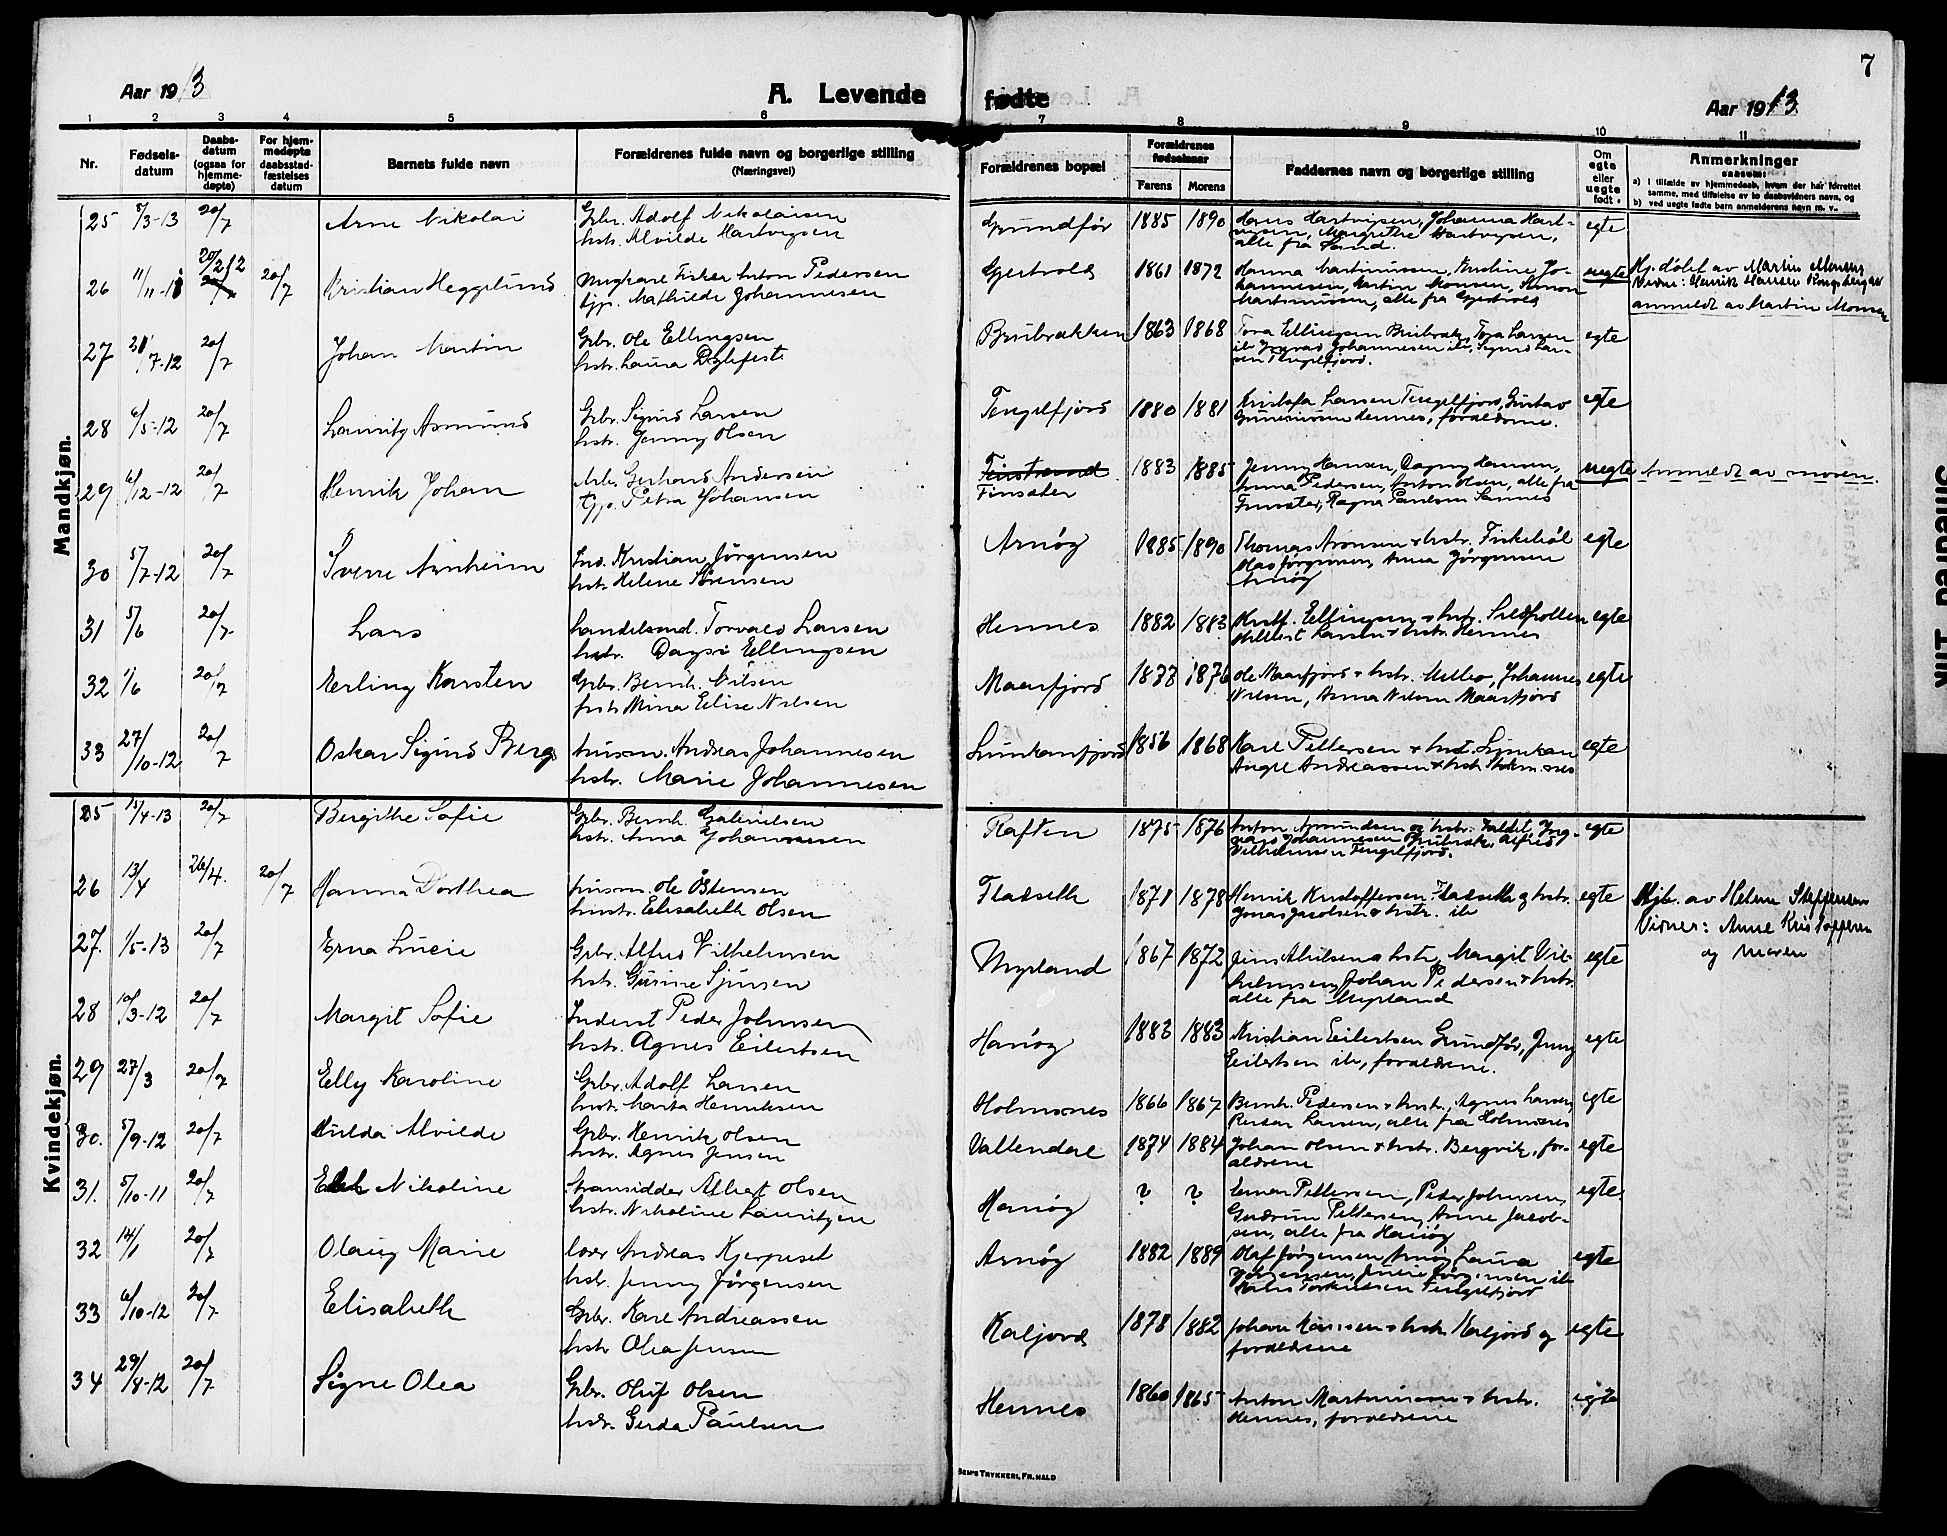 7
Aar 1913
A. Levende
fødte
Aar 1913
1 2 3 4 5 6 7 8 9 10 11
Nr.
Fødsels-
datum
Daabs-
datum
(ogsaa for
hjemme-
døpte)
For hjem-
medøpte
daabsstad-
fæstelses
datum
Barnets fulde navn
Forældrenes fulde navn og borgerlige stilling
(Næringsvei)
Forældrenes bopæl
Forældrenes
fødselsaar
Farens Morens
Faddernes navn og borgerlige stilling
Om
egte
eller
uegte
født.
Anmerkninger
saasom:
a) i tilfælde av hjemmedaab, hvem der har forrettet
samme, med tilføielse av to daabsvidners navn, og
b) ved uegte fødte barn anmelderens navn m. v.
Mandkjøn.
25 20/7 Arne Nikolai
Gbr. Adolf Nikolaisen
hstr. Alvilde Hartvigsen
Grundfør 1885 1890
Hans Hartvigsen, Johanna Hart-
vigsen, Margrethe Hartvigsen,
alle fra Sand.
egte
26 20/7 Kristian Hegglund
Ungkarl Fisker Anton Pedersen
tjp. Mathilde Johannesen
Gjertvold 1861 1872
Hanna Martinussen, Kristine Jo-
hannesen, Martin Monsen, Simon
Martinussen, alle fra Gjertvold
uegte
Hj. døbt av Martin Monsen
Vidne: Henrik Hansen
anmeldt av Martin Monsen
27 7-12 20/7 Johan Martin
Gbr. Ole Ellingsen
hstr. Laura Dybfest
Brubrækken 1863 1868
Tora Ellingsen Brubræk, Tora Larsen
ib Ingvard Johannesen ib, Sigurd Lar-
sen Tengelfjord.
egte
28 6/5-12 20/7 Lauritz Asmund
Gbr. Sigurd Larsen
hstr. Jenny Olsen
Tengelfjord 1880 1881
Kristofa Larsen Tengelfjord, Gustav
Hennes, forældrene.
egte
29 6/12-12 20/7 Henrik Johan
Arb. Gerhard Andersen
tjp. Petra Johansen
Finstrand
Finsæter
1883 1885
Jenny Hansen, Dagny Hansen,
Anna Pedersen, Anton Olsen, alle fra
Finsæter, Ragna Paulsen Sannes
uegte
Anmeldt av moren.
30 5/7-12 20/7 Sverre Arnheim
Ind. Kristian Jørgensen
hstr. Helene Sørensen
Arnøy 1885 1890
Thomas Aronsen & hstr. Fiskebøl
Olaf Jørgensen, Anna Jørgensen
Arnøy
egte
31 5/6 20/7 Lars
handelsmd. Torvald Larsen
hstr. Dagny Ellingsen
Hennes 1882 1883
Kristf. Ellingsen & hstr. Sildpollen
Hilbert Larsen & hstr. Hennes
egte
32 1/6 20/7 Erling Karsten
Gbr. Bernh. Nilsen
hstr. Mina Elise Nilsen
Maarfjord 1873 1876
Ole Maarfjord & hstr. Melbo, Johannes
Nilsen, Anna Nilsen Maarfjord
egte
33 27/10-12 20/7 Oskar Sigurd Berg
husm. Andreas Johannesen
hstr. Marie Johannesen
Lunkanfjord 1856 1868
Karl Pettersen & hst. Lunkan
Angel Andreassen & hstr.
egte
Kvindekjøn.
25 15/4-13 20/7 Bergithe Sofie
Gbr. Bernh. Gabrielsen
hstr. Anna Johannesen
Raften 1875 1876
Anton Amundsen og hstr. Ing-
vard Johannesen Brubræk, Alfred
Vilhelmsen Tengelfjord.
egte
26 13/4 26/4. 20/7 Hanna Dorthea
husm. Ole Østensen
hustr. Elisabeth Olsen
Fladseth 1871 1878
Henrik Kristoffersen Fladseth & hstr.
Jonas Jacobsen & hstr. ib
egte
Hjb. av Helene Steffensen
Vidner: Anne Kristoffersen
og moren
27. 1/5-13 20/7 Erna Lucie
Gbr. Alfred Vilhelmsen
hstr. Gusine Sjursen
Myrland 1867 1872
Jens Abilsen & hstr, Margit Vil-
helmsen, Johan Pedersen & hstr.
alle fra Myrland
egte
28 10/3-12 20/7 Margit Sofie
Inderst Peder Johnsen
hstr. Agnes Eilertsen
Hanøy 1883 1883
Kristian Eilertsen Grundfør, Jenny
Eilertsen ib, forældrene.
egte
29 27/3 20/7 Elly Karoline
Gbr. Adolf Larsen
hustr. Marta Henriksen
Holmsnes 1866 1867
Bernh. Pedersen & hustr, Agnes Larsen,
Larsen, alle fra Holmsnes
egte
30. 5/9-12 20/7 Hulda Alvilde
Gbr. Henrik Olsen
hstr. Agnes Jensen
Vattendal 1874 1884
Johan Olsen & hstr. Bergvik, for-
ældrene
egte
31. 5/10-11 20/7 Nikoline
Strandsidder Albert Olsen
hstr. Nikoline Lauritzen
Hanøy ? ?
Pettersen, Peder Johnsen,
Gudrun Pettersen, Anne Jacob-
sen, alle fra Hanøy
egte
32 14/1 20/7 Olaug Marie
Andreas
hstr. Jenny Jørgensen
Arnøy 1882 1889
Olaf Jørgensen Arnøy, Laura
Jørgensen, Jørgensen ib
Torkildsen Tengelfjord
egte
33 6/10-12 20/7 Elisabeth
Gbr. Karl Andreassen
hstr Olea Jensen
Kaljord 1878 1882
Johan Hanssen & hstr Kaljord og
forældrene
egte
34 29/8-12 20/7 Signe Olea
Gbr. Oluf Olsen
hstr. Gerda Paulsen
Hennes 1860 1865
Anton Martinussen & hstr.
Hennes, forældrene
egte
TRYKKERI, FR.HALD